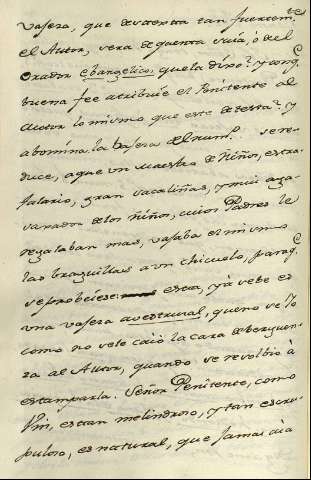 vajesa, que detesta tan fuertem.te
el Autor, sera de quenta suia, ò del
Orador Ebangelico, que la dixo? y conq.
buena fee atribuíe el Penitente al
Autor lo mismo que este detesta? y
abomina. la bajesa del num. se re-
duce, a que un Maestro de Niños, estra-
falario, gran y mui aga-
de los Niños, cuios Padres le
regalaban mas, vajaba el mismo
las braguillas a un chicuelo, paraq.
se probeiese esta, yà se ve es
una vajesa avestrusal, que no se lo
como no se le caiò la cara de berguen-
za al Autor, quando se resolbiò à
estamparla. Señor Penitente, como
Vm, es tan melindroso, y tan escru-
puloso, es natural, que jamas aia